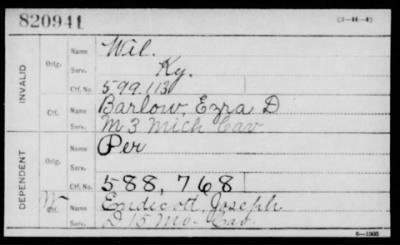 820941 (3-H-4)
INVALID
Orig. Name Wil.
Serv. Ky.
Ctf. No. 599.113
Ctf. Name Barlow, Ezra D
Serv. M 3 Mich Cav
DEPENDENT
Orig. Name Per
Serv.
Ctf. No. 588,768
W Ctf. Name Endicott, Joseph
Serv. D 15 Mo. Cav.